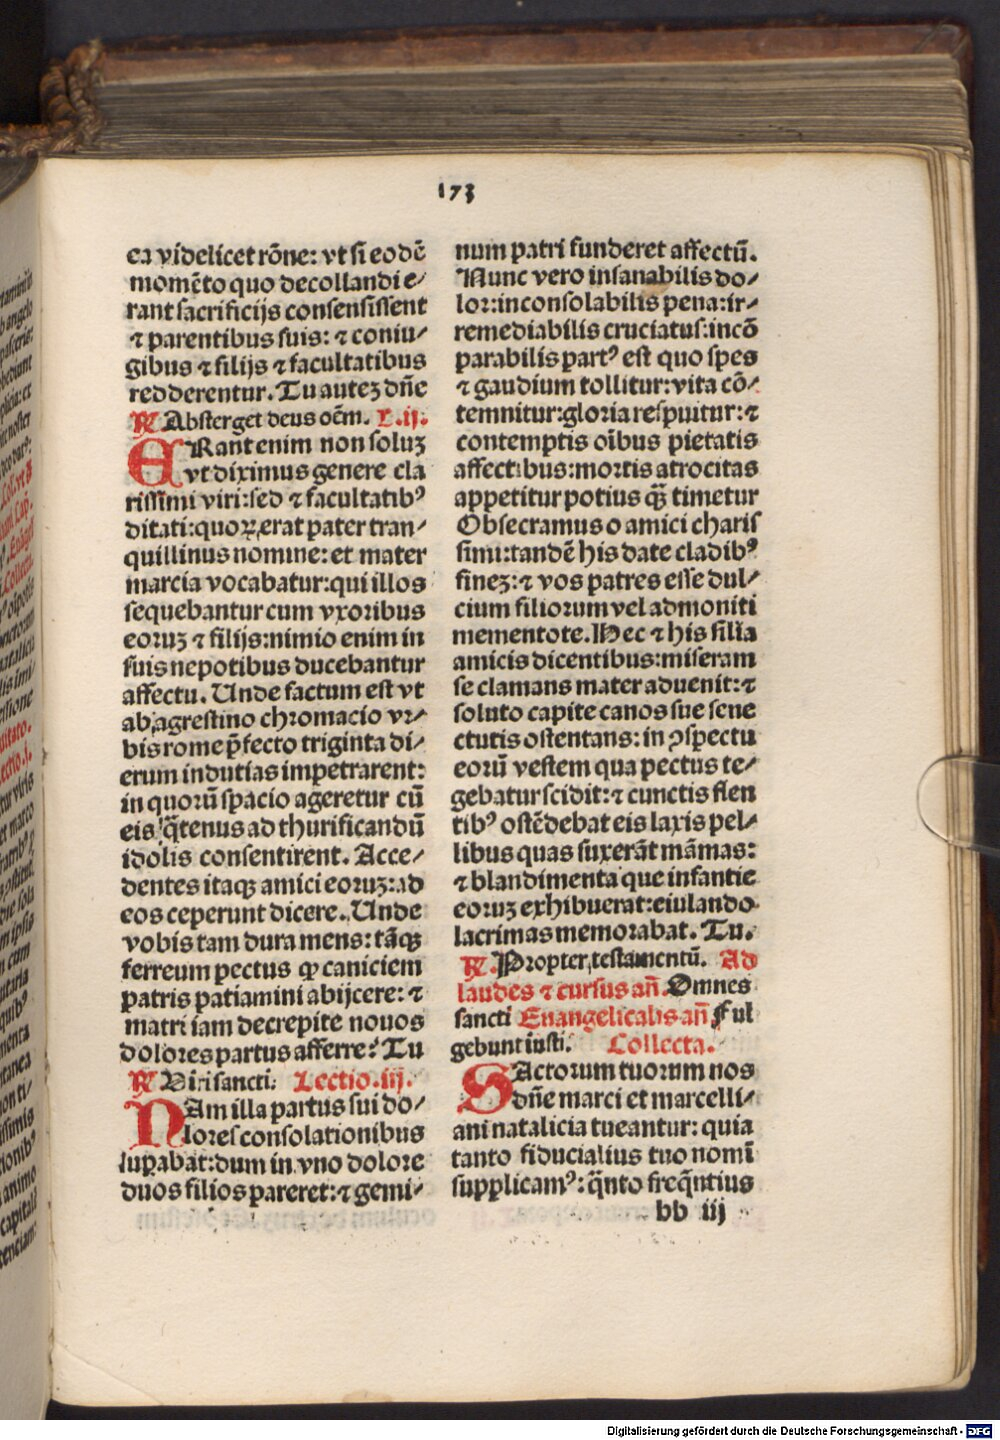 173
ea videlicet rōne: vt si eodē
momēto quo decollandi e⸗
rant sacrificijs consensissent
⁊ parentibus suis: ⁊ coniu⸗
gibus ⁊ filijs ⁊ facultatibus
redderentur. Tu auteꝫ dn̄e
℟ Absterget deus oēm. L.ij.
ERant enim non soluꝫ
vt diximus genere cla
rissimi viri: sed ⁊ facultatibꝰ
ditati: quoꝝ erat pater tran⸗
quillinus nomine: et mater
marcia vocabatur: qui illos
sequebantur cum vxoribus
eoruꝫ ⁊ filijs: nimio enim in
suis nepotibus ducebantur
affectu. Unde factum est vt
ab agrestino chromacio vr⸗
bis rome p̄fecto triginta di⸗
erum indutias impetrarent:
in quorū spacio ageretur cū
eis q̄tenus ad thurificandū
idolis consentirent. Acce⸗
dentes itaqꝫ amici eoruꝫ: ad
eos ceperunt dicere. Unde
vobis tam dura mens: tāqꝫ
ferreum pectus ꝙ caniciem
patris patiamini abijcere: ⁊
matri iam decrepite nouos
dolores partus afferre? Tu
℟ Viri sancti. Lectio.iij.
NAm illa partus sui do⸗
lores consolationibus
luꝑabat: dum in vno dolore
duos filios pareret: ⁊ gemi⸗
num patri funderet affectū.
Nunc vero insanabilis do⸗
lor: inconsolabilis pena: ir⸗
remediabilis cruciatus: incō
parabilis partꝰ est quo spes
⁊ gaudium tollitur: vita cō⸗
temnitur: gloria respuitur: ⁊
contemptis oībus pietatis
affectibus: mortis atrocitas
appetitur potius qꝫ̄ timetur
Obsecramus o amici charis
simi: tandē his date cladibꝰ
fineꝫ: ⁊ vos patres esse dul⸗
cium filiorum vel admoniti
mementote. Hec ⁊ his silia
amicis dicentibus: miseram
se clamans mater aduenit: ⁊
soluto capite canos sue sene
ctutis ostentans: in ꝯspectu
eorū vestem qua pectus te⸗
gebatur scidit: ⁊ cunctis flen
tibꝰ ostēdebat eis laxis pel⸗
libus quas suxerāt māmas:
⁊ blandimenta que infantie
eoruꝫ exhibuerat: eiulando
lacrimas memorabat. Tu.
℟. Propter testamentū. Ad
laudes ⁊ cursus an̄. Omnes
sancti Euangelicalis an̄ Ful
gebunt iusti. Collecta.
SActorum tuorum nos
dn̄e marci et marcelli⸗
ani natalicia tueantur: quia
tanto fiducialius tuo nomī
supplicamꝰ: q̄nto freq̄ntius
bb iij
Digitalisierung gefördert durch die Deutsche Forschungsgemeinschaft - DFG